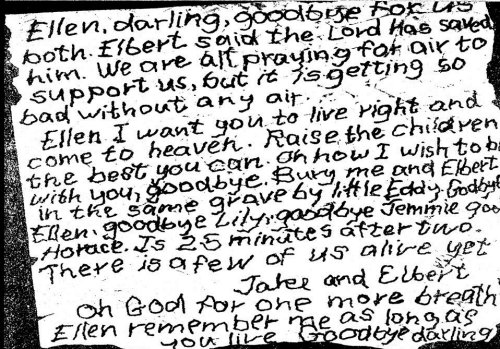 Ellen, darling, goodbye for us
both. Elbert said the Lord Has saved
him. We are all praying for air to
support us, but it is getting so
bad without any air.
Ellen I want you to live right and
come to heaven. Raise the children
the best you can. Oh how I wish to be
with you, goodbye. Bury me and Elbert
in the same grave by little Eddy. Godbye
Ellen, goodbye Lily, goodbye Jemmie goo
Horace. Is 25 minutes after two.
There is a few of us alive yet
Jake and Elbert
Oh God for one more breath
Ellen remember me as long as
you live Goodbye darling